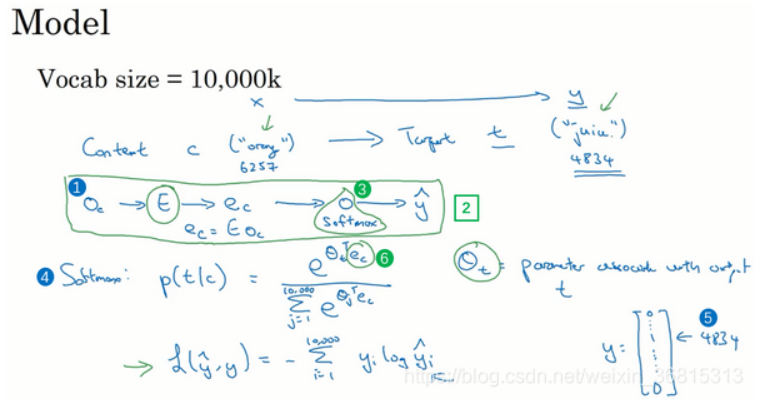 Model
Vocab size = 10,000k
x → y
Context c ("orange") → Target t ("juice")
6257 4834
1 O_c → E → e_c → O 3 → ŷ 2
Softmax
e_c = E O_c
4 Softmax: p(t|c) = e^{θ_t^T e_c} / ∑_{j=1}^{10,000} e^{θ_j^T e_c} 6
θ_t = parameter associated with output t
→ ℒ(ŷ, y) = - ∑_{i=1}^{10,000} y_i log ŷ_i
y = [0 ⋮ 1 ⋮ 0] ← 4834 5
https://blog.csdn.net/weixin_36815313